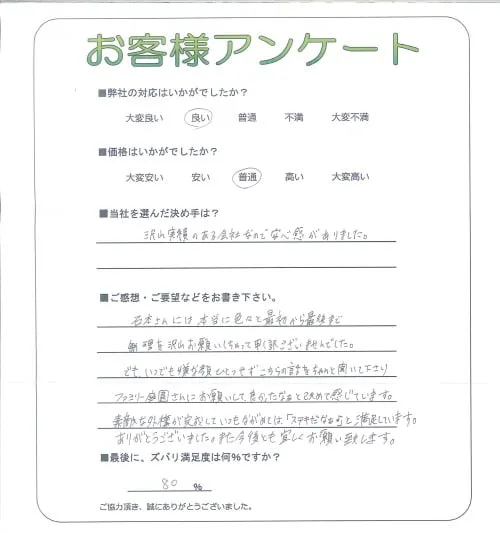 お客様アンケート
■弊社の対応はいかがでしたか?
大変良い 良い 普通 不満 大変不満
■価格はいかがでしたか?
大変安い 安い 普通 高い 大変高い
■当社を選んだ決め手は?
沢山実績のある会社なので安心感がありました。
■ご感想・ご要望などをお書き下さい。
さんには本当に色々と最初から最後まで
無理を沢山お願いしちゃって申し訳ございませんでした。
でも、いつでも嫌な顔ひとつせずこちらの話をちゃんと聞いて下さり
ファミリー庭園さんにお願いして良かったなぁと改めて感じています。
素敵な外構が完成していつもながめては、「ステキだなぁ」と満足しています。
ありがとうございました。また今後とも宜しくお願い致します。
■最後に、ズバリ満足度は何%ですか?
80 %
ご協力頂き、誠にありがとうございました。